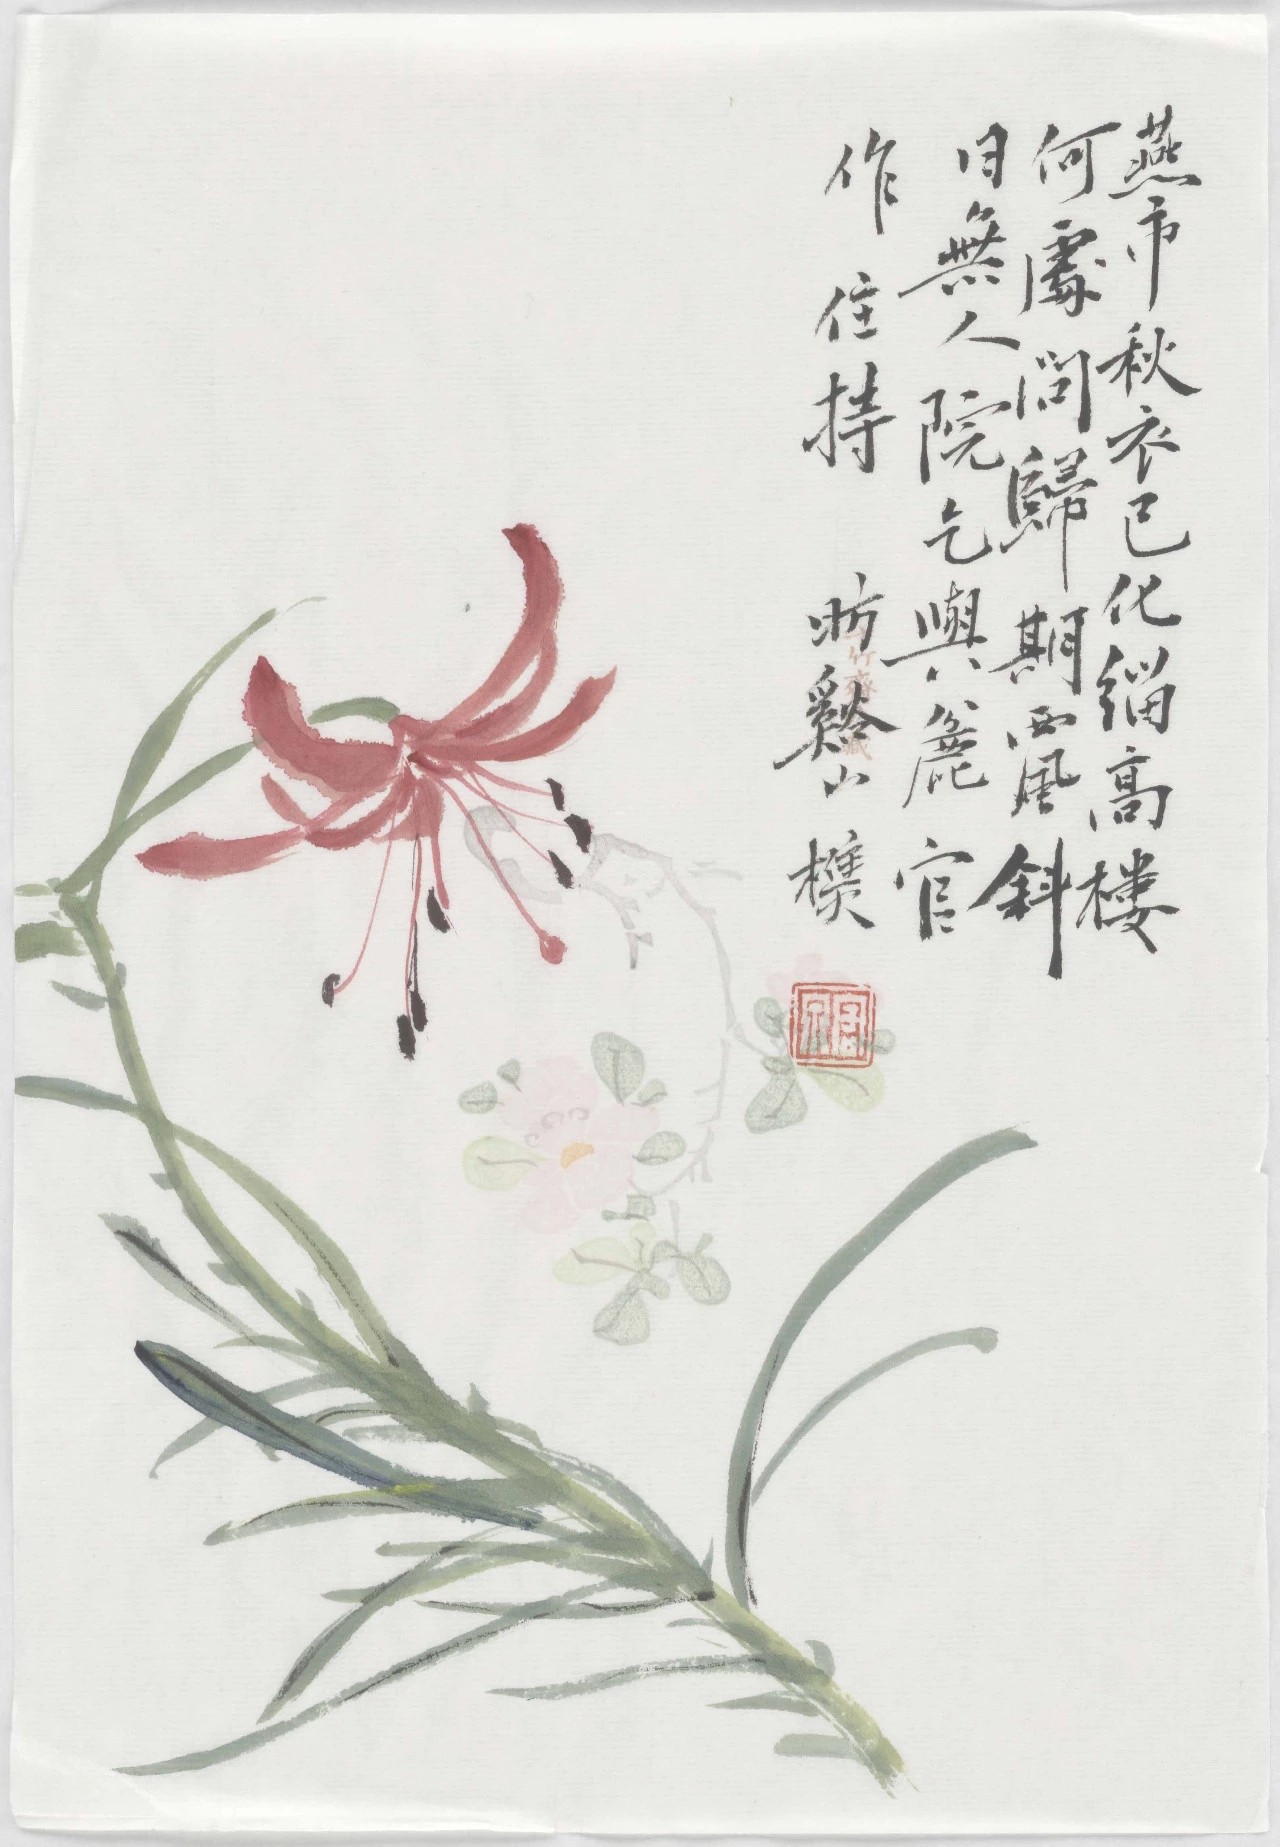 燕市秋衣已化緇高樓
何處問歸期西風斜
日無人院乞與麓官
作住持 昉谿山樵
竹齋藏